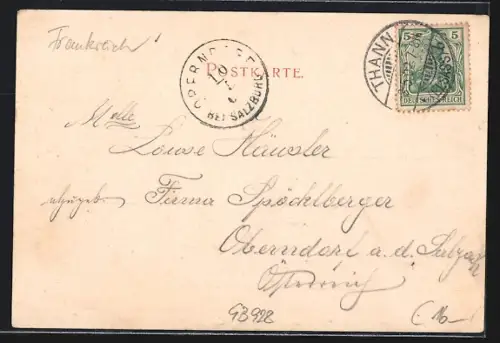 Frankreich!
OBERNDORF
BEI SALZBURG
POSTKARTE.
THANN
5 5
DEUTSCHES REICH
Mlle
Louise Häusler
abzugeb. Firma Spödelberger
Oberndorf a. d. Salzach
Österreich
GB928